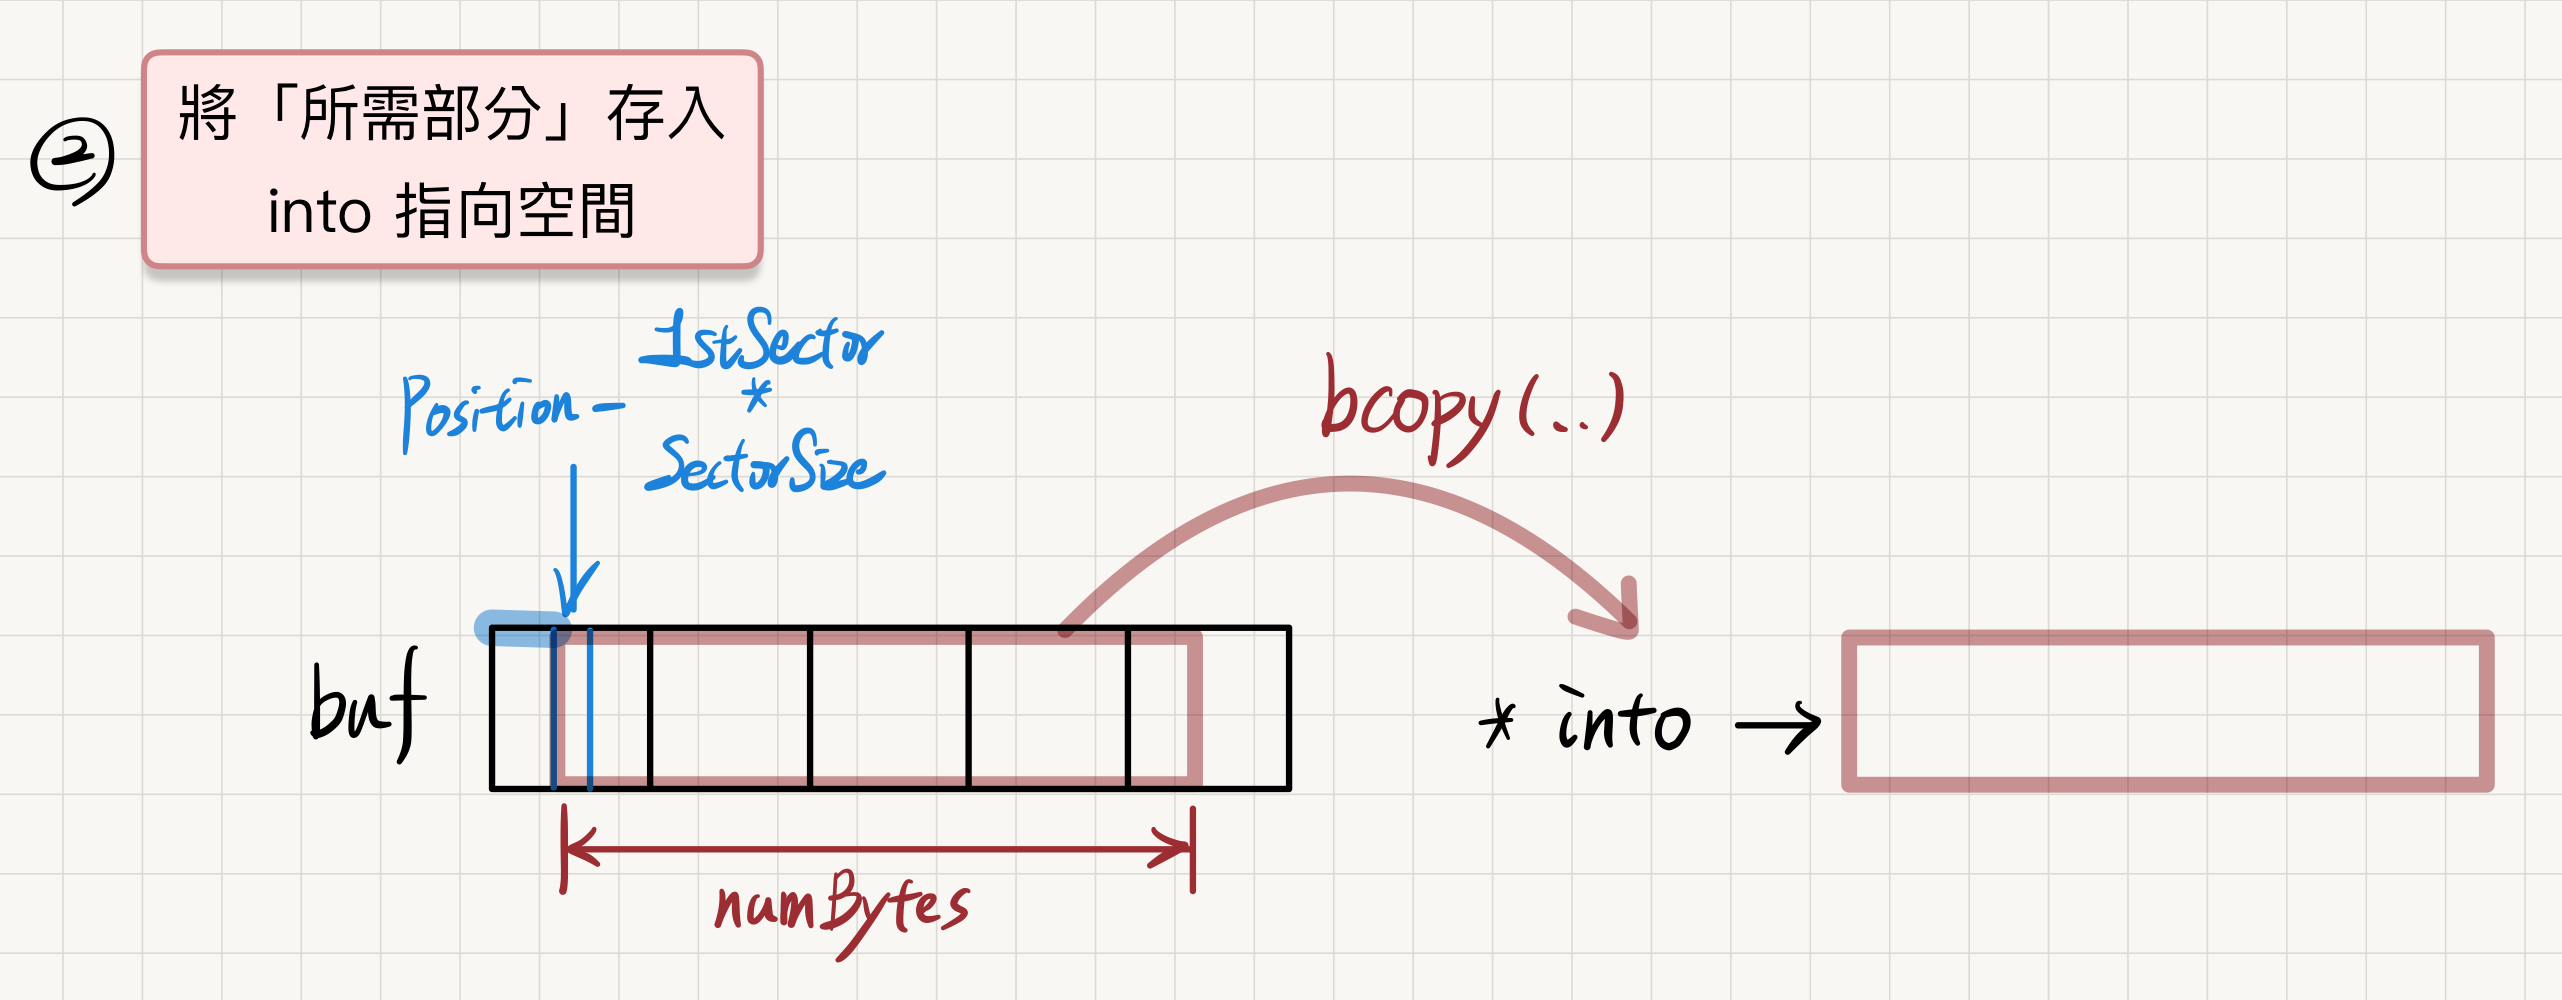 ②
將「所需部分」存入
into 指向空間
Position - 1stSector
*
SectorSize
bcopy(...)
buf
* into →
numBytes